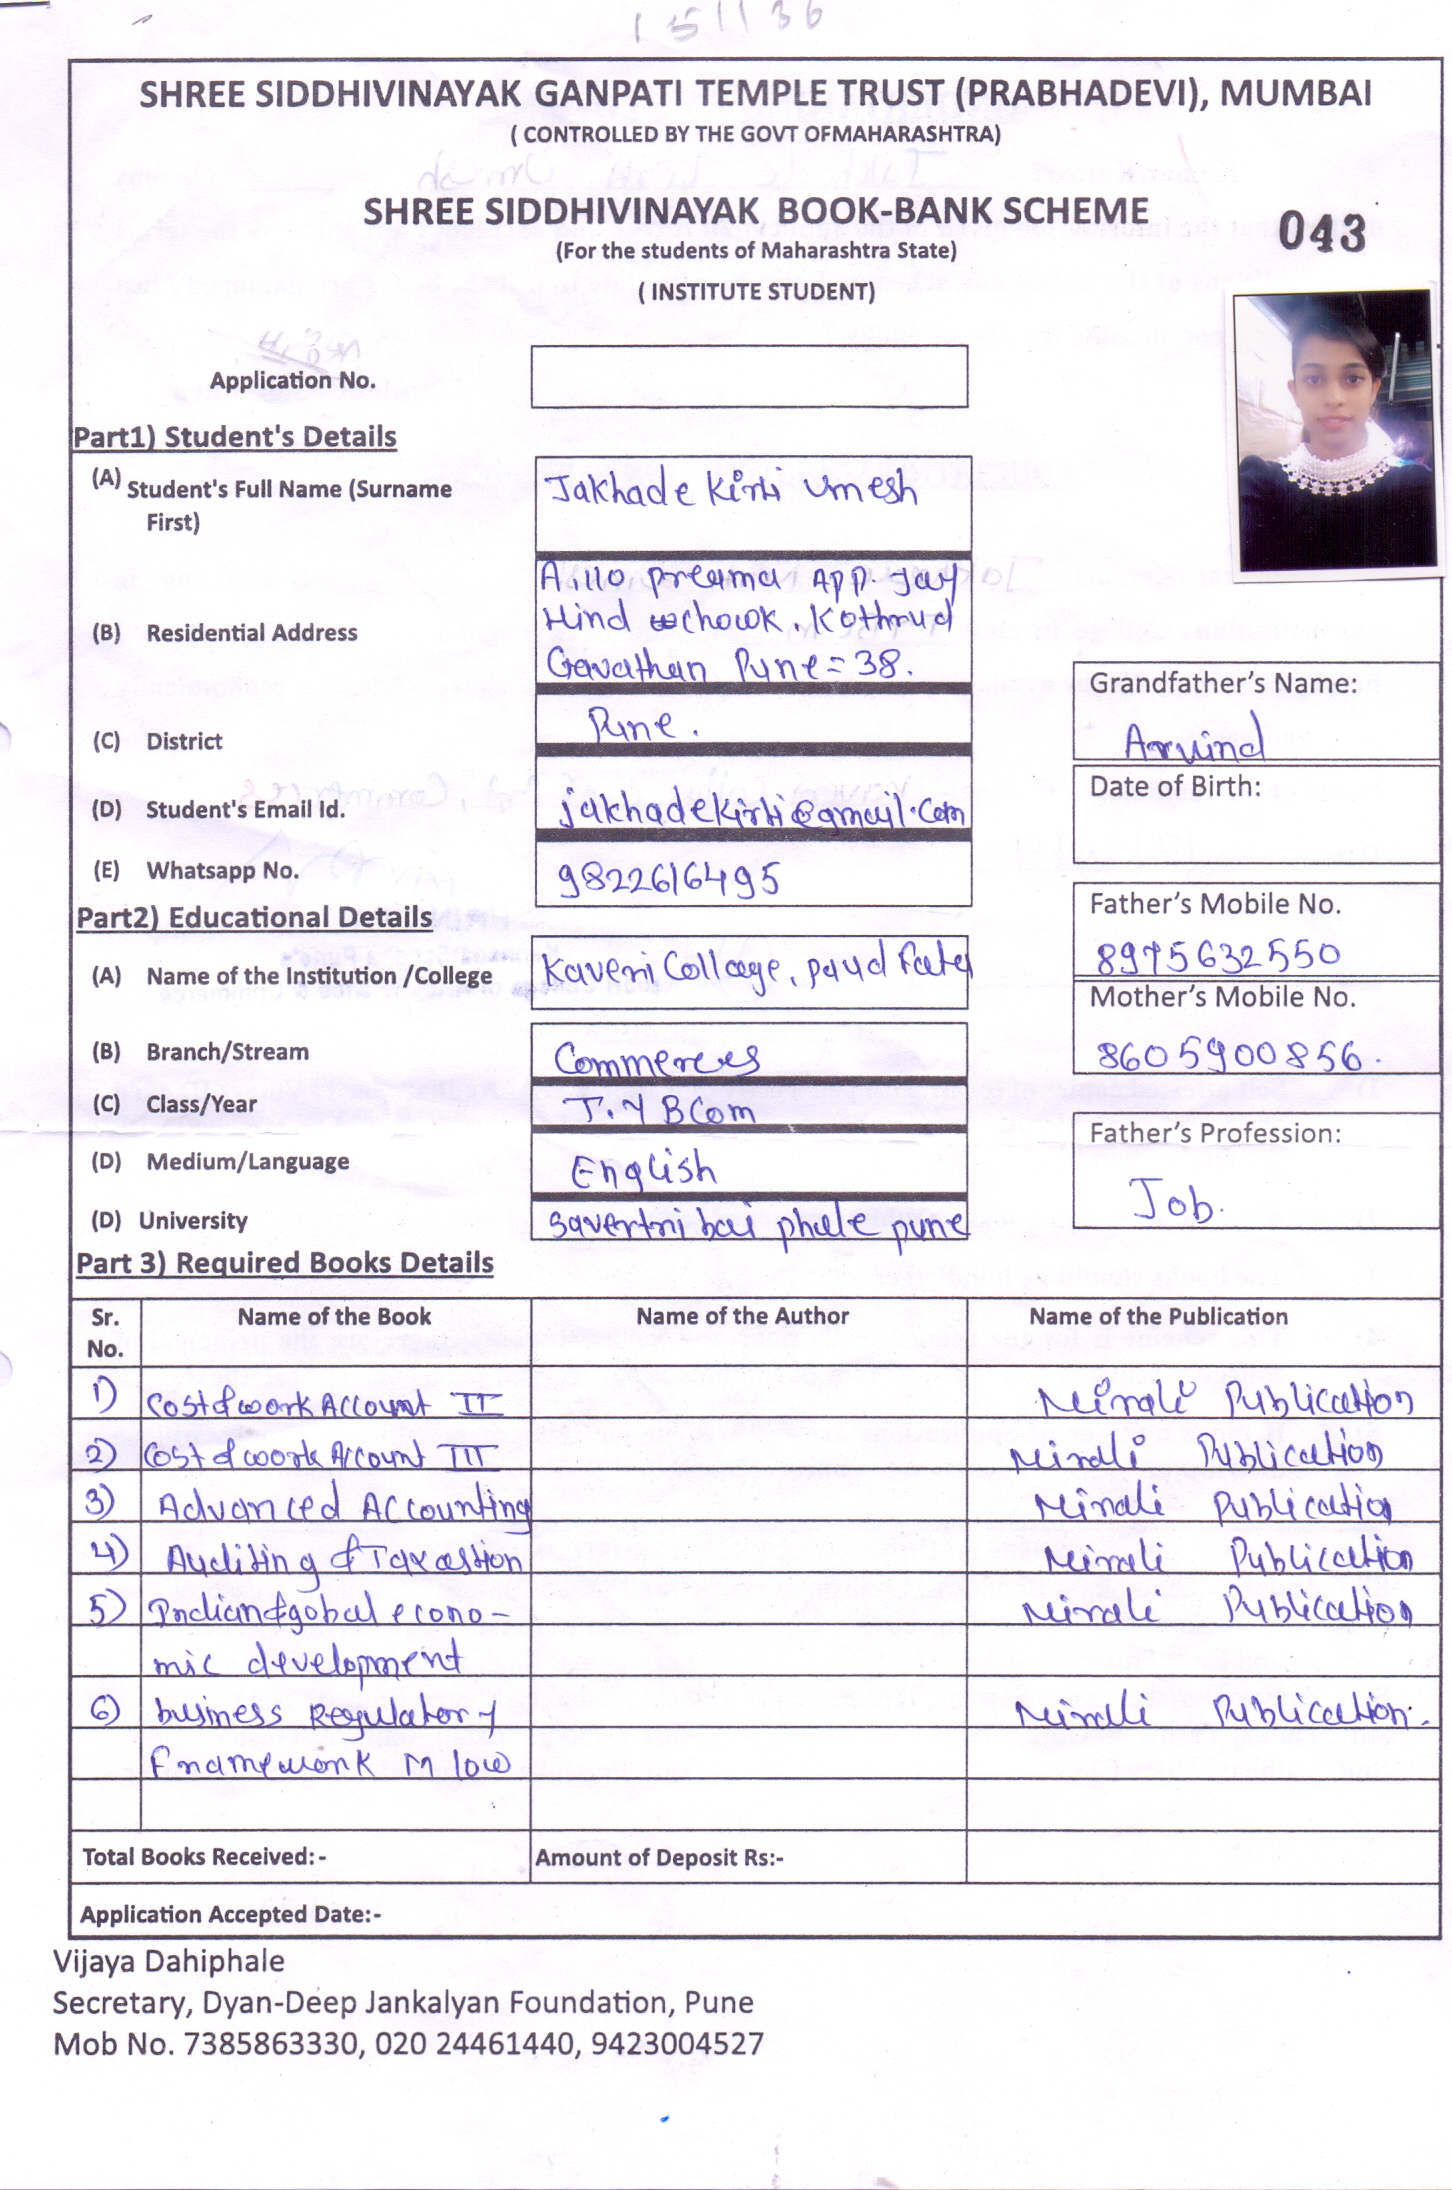 151136
SHREE SIDDHIVINAYAK GANPATI TEMPLE TRUST (PRABHADEVI), MUMBAI
( CONTROLLED BY THE GOVT OFMAHARASHTRA)
SHREE SIDDHIVINAYAK BOOK-BANK SCHEME
043
(For the students of Maharashtra State)
( INSTITUTE STUDENT)
Application No.
Part1) Student's Details
(A) Student's Full Name (Surname First)
Jakhade Kirti Umesh
(B) Residential Address
A/110 prerma App Jay
Hind chowk, Kothrud
Gavathan Pune = 38.
(C) District
Pune.
(D) Student's Email Id.
jakhadekirti@gmail.com
(E) Whatsapp No.
9822616495
Grandfather's Name:
Arvind
Date of Birth:
Father's Mobile No.
8975632550
Mother's Mobile No.
8605900856.
Father's Profession:
Job.
Part2) Educational Details
(A) Name of the Institution /College
Kaveri Collage, paud
(B) Branch/Stream
Commerces
(C) Class/Year
T.Y BCom
(D) Medium/Language
English
(D) University
savertri bai phale pune
Part 3) Required Books Details
Sr. No. Name of the Book Name of the Author Name of the Publication
1) Cost & work Account II Nirali Publication
2) Cost & work Account III Nirali Publication
3) Advanced Accounting Nirali Publication
4) Auditing & Taxastion Nirali Publication
5) Indian & gobal econo- Nirali Publication
mic development
6) business Regulatory Nirali Publication.
Framework M low
Total Books Received:- Amount of Deposit Rs:-
Application Accepted Date:-
Vijaya Dahiphale
Secretary, Dyan-Deep Jankalyan Foundation, Pune
Mob No. 7385863330, 020 24461440, 9423004527